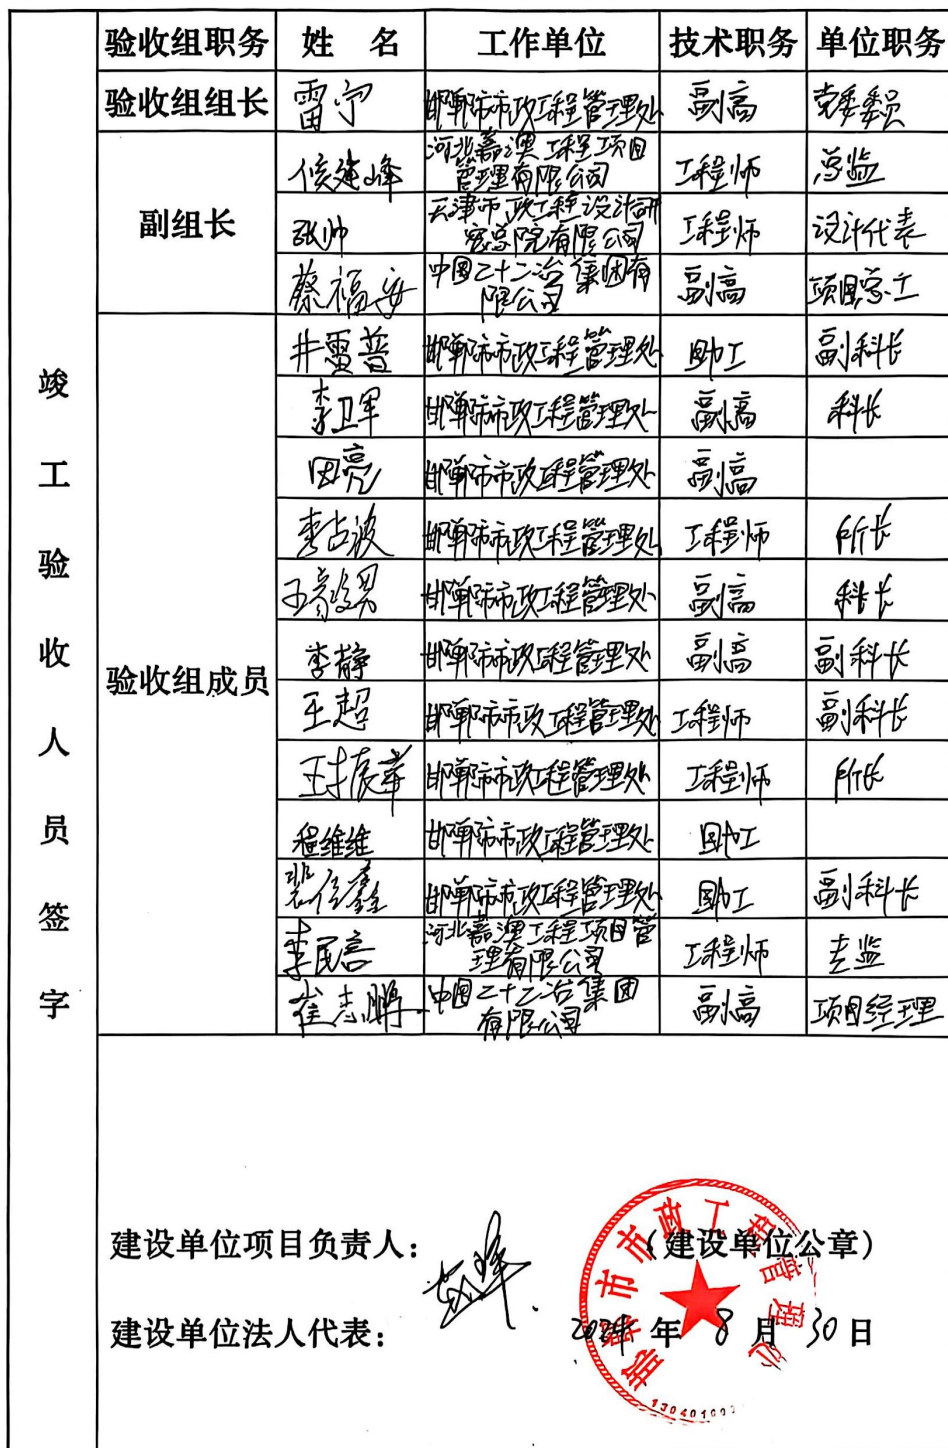 竣工验收人员签字
验收组职务 姓 名 工作单位 技术职务 单位职务
验收组组长 雷宁 邯郸市市政工程管理处 副高 党委委员
副组长
侯建峰 河北嘉澳工程项目管理有限公司 工程师 总监
张帅 天津市政工程设计研究总院有限公司 工程师 设计代表
蔡福安 中国二十二冶集团有限公司 副高 项目总工
验收组成员
井雷普 邯郸市市政工程管理处 助工 副科长
李卫军 邯郸市市政工程管理处 副高 科长
田亮 邯郸市市政工程管理处 副高
李占波 邯郸市市政工程管理处 工程师 所长
邯郸市市政工程管理处 副高 科长
李静 邯郸市市政工程管理处 副高 副科长
王超 邯郸市市政工程管理处 工程师 副科长
邯郸市市政工程管理处 工程师 所长
程维维 邯郸市市政工程管理处 助工
邯郸市市政工程管理处 助工 副科长
河北嘉澳工程项目管理有限公司 工程师 专监
崔志鹏 中国二十二冶集团有限公司 副高 项目经理
建设单位项目负责人：
（建设单位公章）
建设单位法人代表：
2024年8月30日
邯郸市市政工程管理处